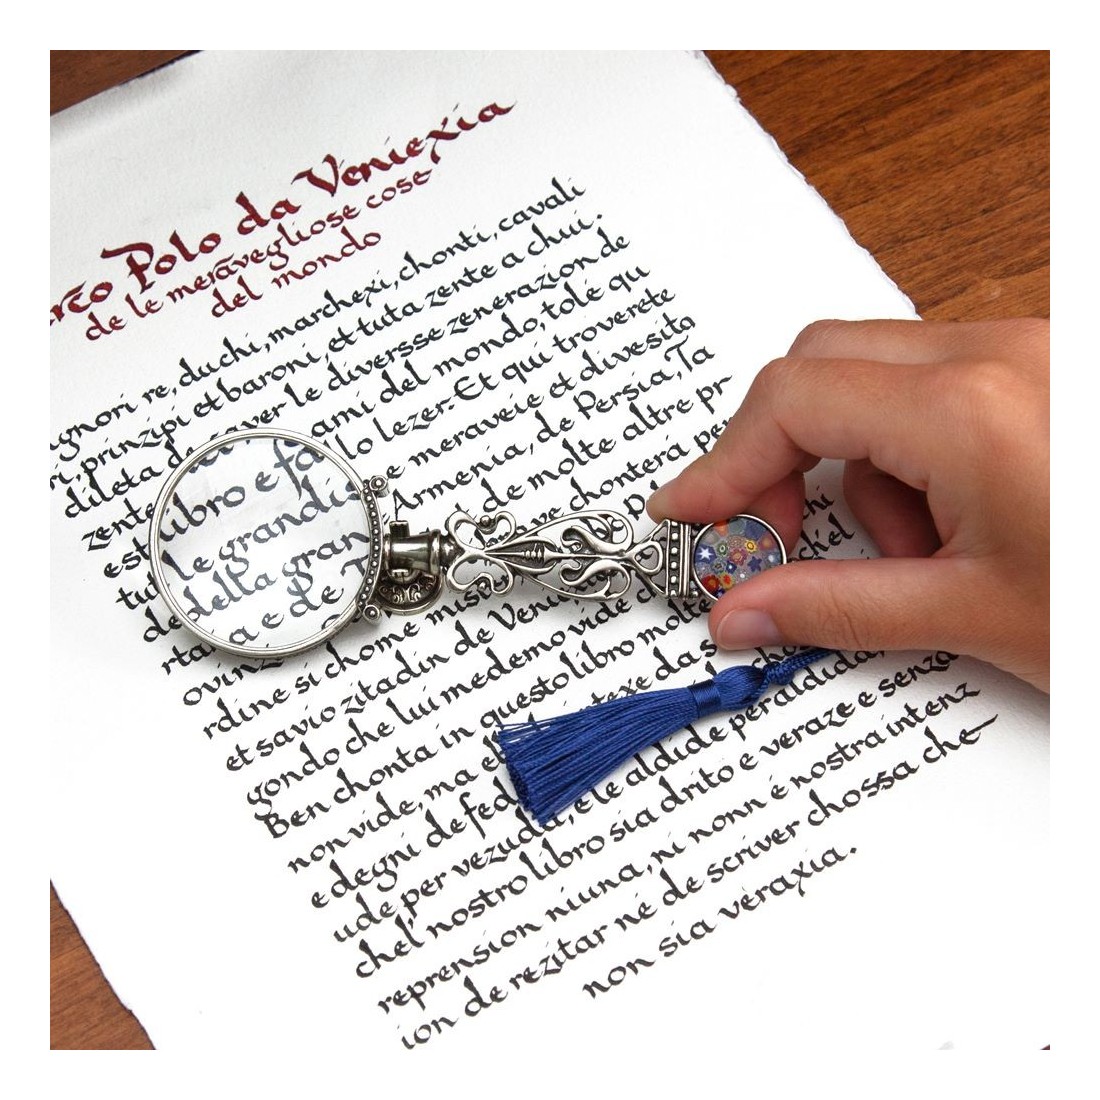 rco Polo da Veniexia
de le meravegliose cose
del mondo
ignori re, duchi, marchexi, chonti, cavali
ri, prinzipi et baroni et tuta zente a chui.
dileta aver le diversse zenerazion de
zente ami del mondo, tolé qu
est libro e lo lezer. Et qui troverete
tu le grandis e meraveie et divesita
de della gran Armenia, de Persia, Ta
rta a e de de molte altre pr
ovinz ve chonterà per
rdine si chome
et savio zitadin de Ven chel
gondo che lui medemo vide cho
Ben chonta in questo libro molte
non vide, ma e da s
e degni de fed
ude per vezuda, e le aldide per aldida,
chel nostro libro sia drito e veraze e senza
reprension niuna, ni nonn é nostra intenz
ion de rezitar né de scriver chossa che
non sia veraxia.